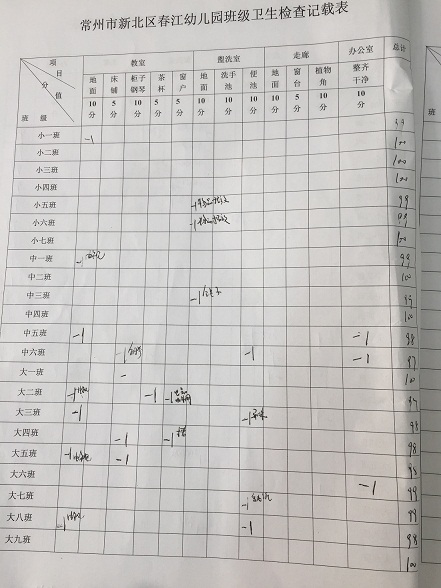 常州市新北区春江幼儿园班级卫生检查记载表
项目 分值 班级 教室 盥洗室 走廊 办公室 总计
地面 床铺 柜子钢琴 茶杯 窗户 地面 洗手池 便池 地面 窗台 植物角 整齐干净
10分 5分 10分 5分 5分 10分 10分 10分 10分 5分 10分 10分
小一班 -1 99
小二班 100
小三班 100
小四班 100
小五班 -1 99
小六班 -1 99
小七班 100
中一班 -1 99
中二班 100
中三班 -1 99
中四班 100
中五班 -1 -1 98
中六班 -1 -1 -1 97
大一班 - 100
大二班 -1 -1 -1 97
大三班 -1 -1 98
大四班 -1 -1 98
大五班 -1 -1 98
大六班 -1 99
大七班 -1 99
大八班 -1 -1 98
大九班 100